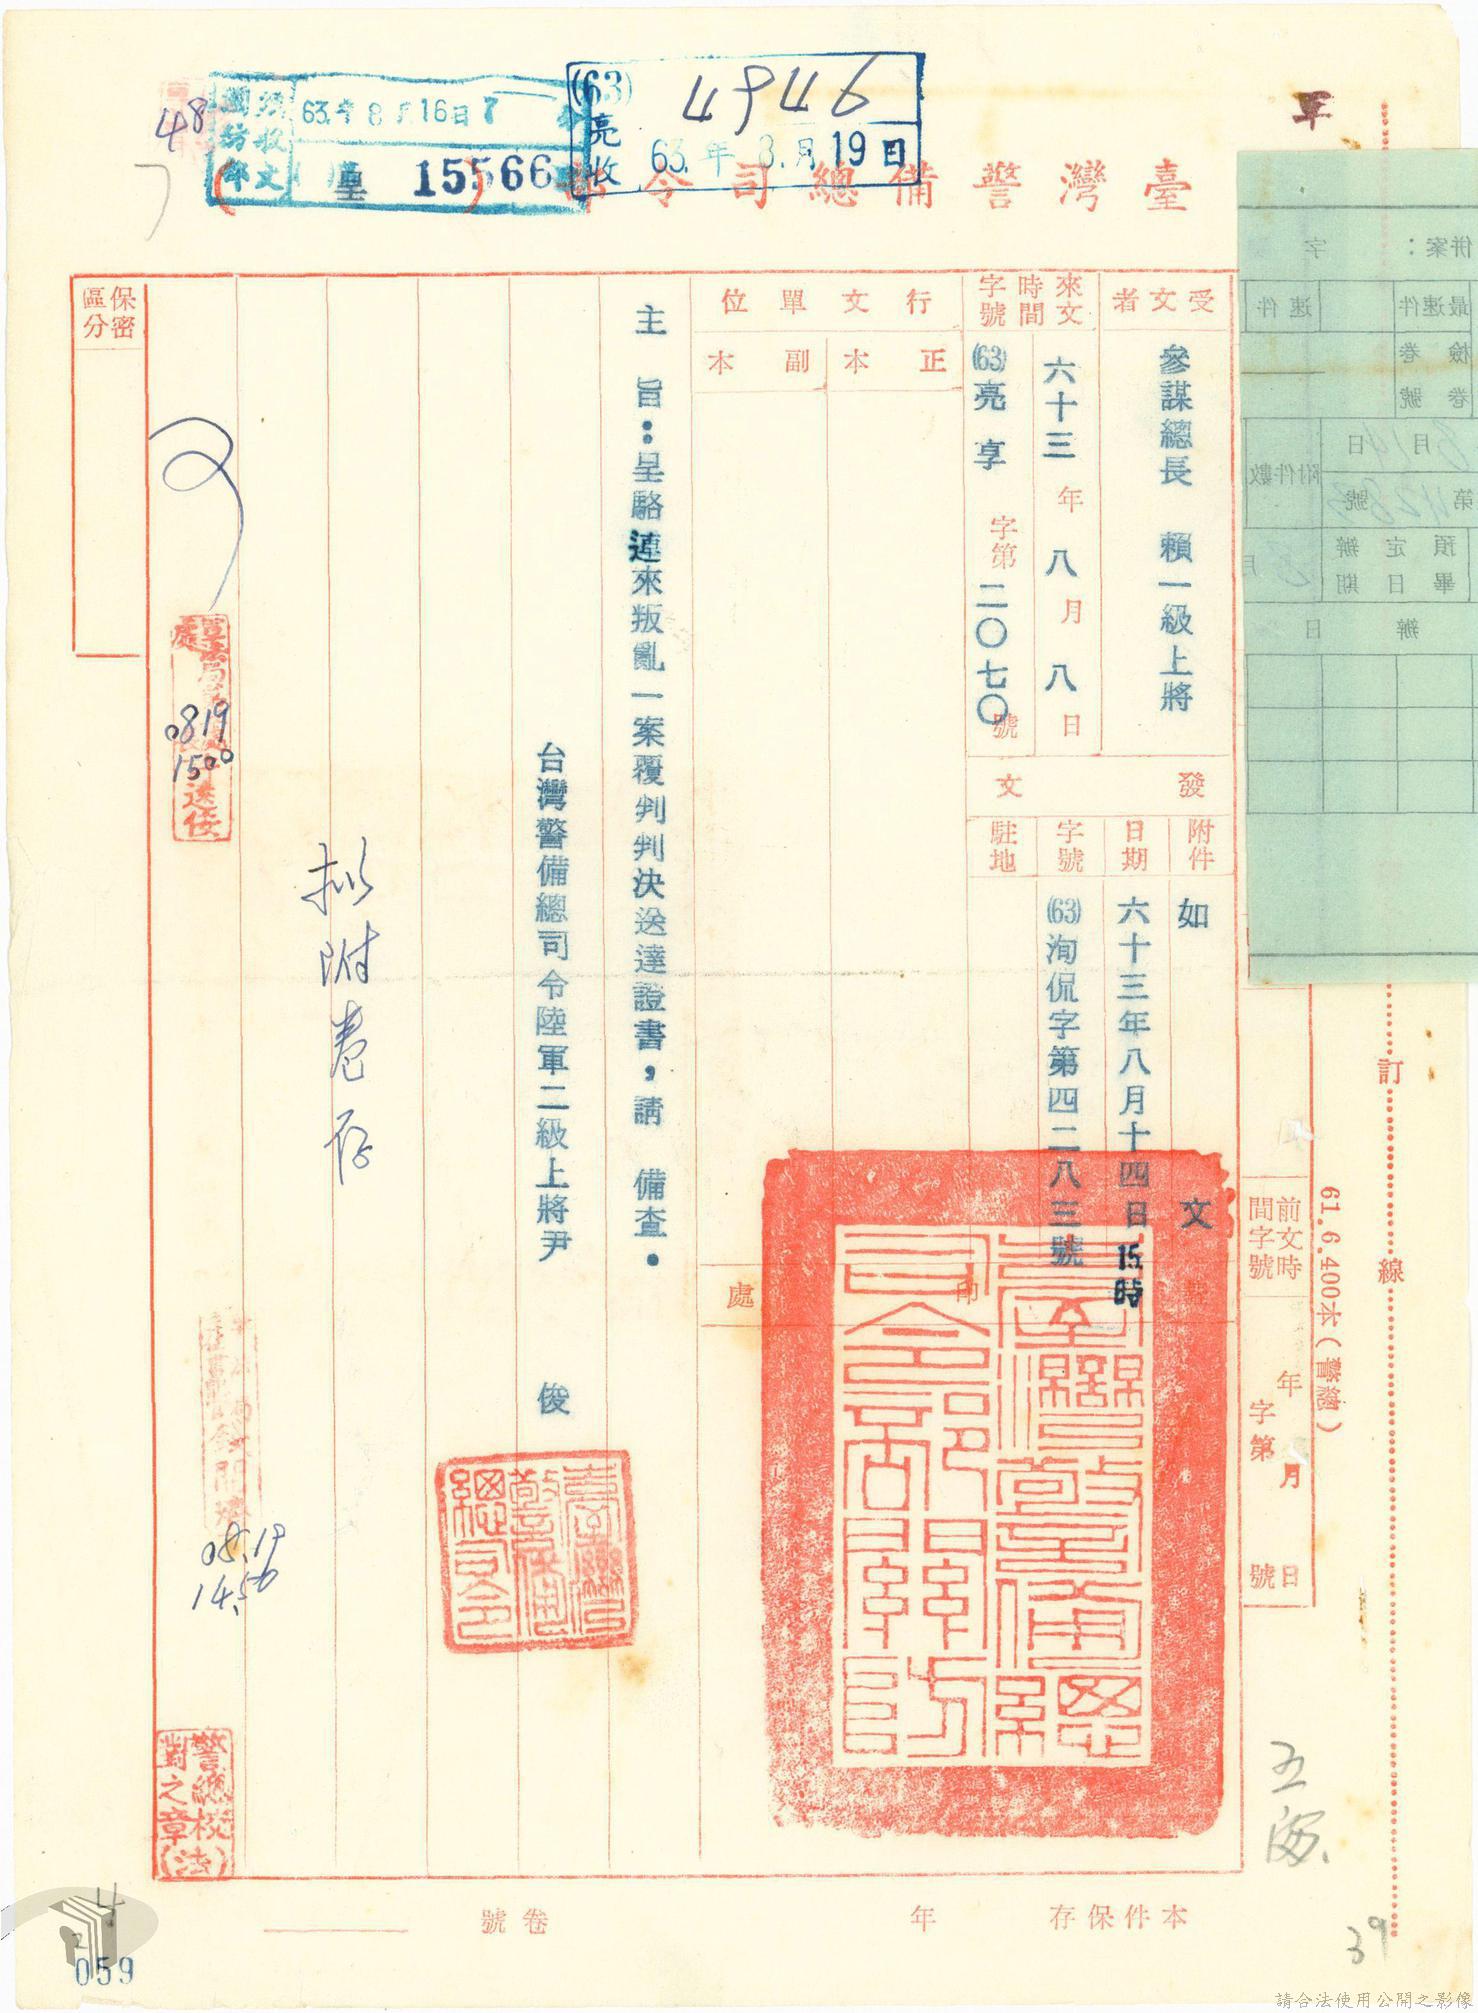 (63)
亮收
4946
63.年8.月19日
國防部
收文
63.年8月16日
15566
48
臺灣警備總司令部
(呈)
受文者
參謀總長 賴一級上將
來文
時間
六十三年八月八日
字號
(63)亮享字第二〇七〇號
發文
附件
如文
日期
六十三年八月十四日15時
字號
(63)洵侃字第四二八三號
駐地
行文單位
正本
副本
蓋印處
主 旨：呈駱連來叛亂一案覆判判決送達證書，請 備查。
台灣警備總司令陸軍二級上將尹 俊
臺灣警備總司令
臺灣警備總司令部關防
擬附卷存
0819
1500
08.19
14.50
保密
區分
警總校對之章(法)
併案： 字
最速件
速件
檢卷
卷號
8月14日
第4283號
附件數
預定辦
畢日期
月
辦 日
訂
線
前文時
間字號
年 月 日
字第 號
61.6.400本(警總)
本件保存 年
卷號
39
059
請合法使用公開之影像